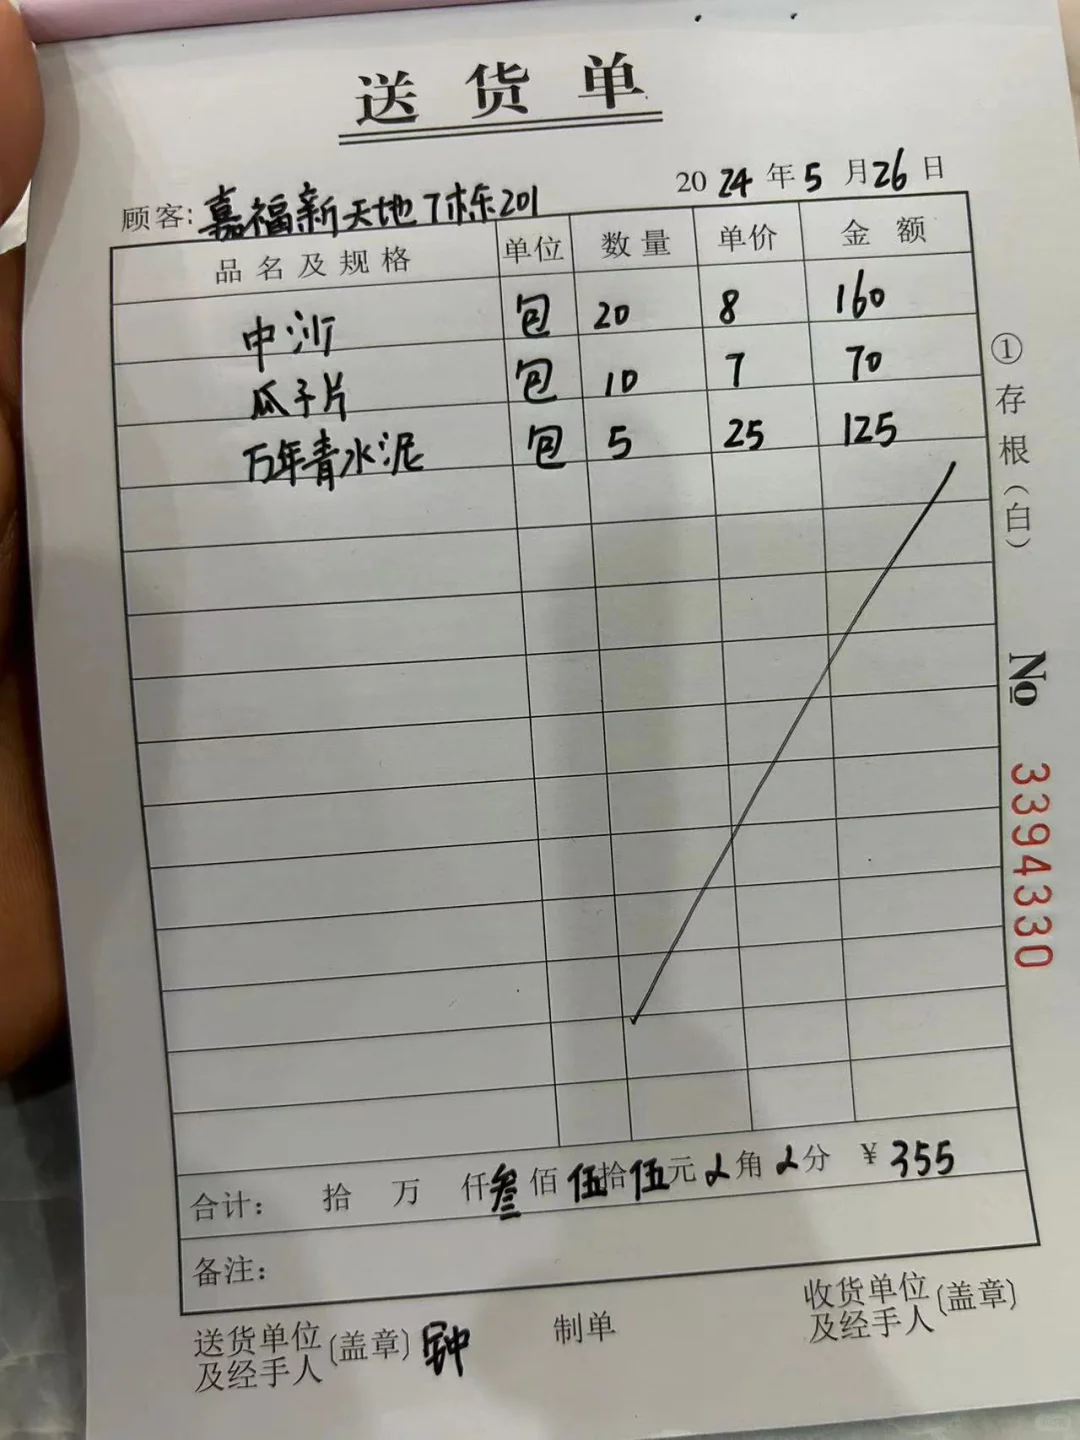 送货单
顾客: 嘉福新天地7栋201 2024年5月26日
品名及规格 单位 数量 单价 金额
中沙 包 20 8 160
瓜子片 包 10 7 70
万年青水泥 包 5 25 125
合计: 拾 万 仟叁佰伍拾伍元 角 分 ¥355
备注:
送货单位及经手人(盖章) 钟 制单 收货单位及经手人(盖章)
①存根(白)
№ 3394330